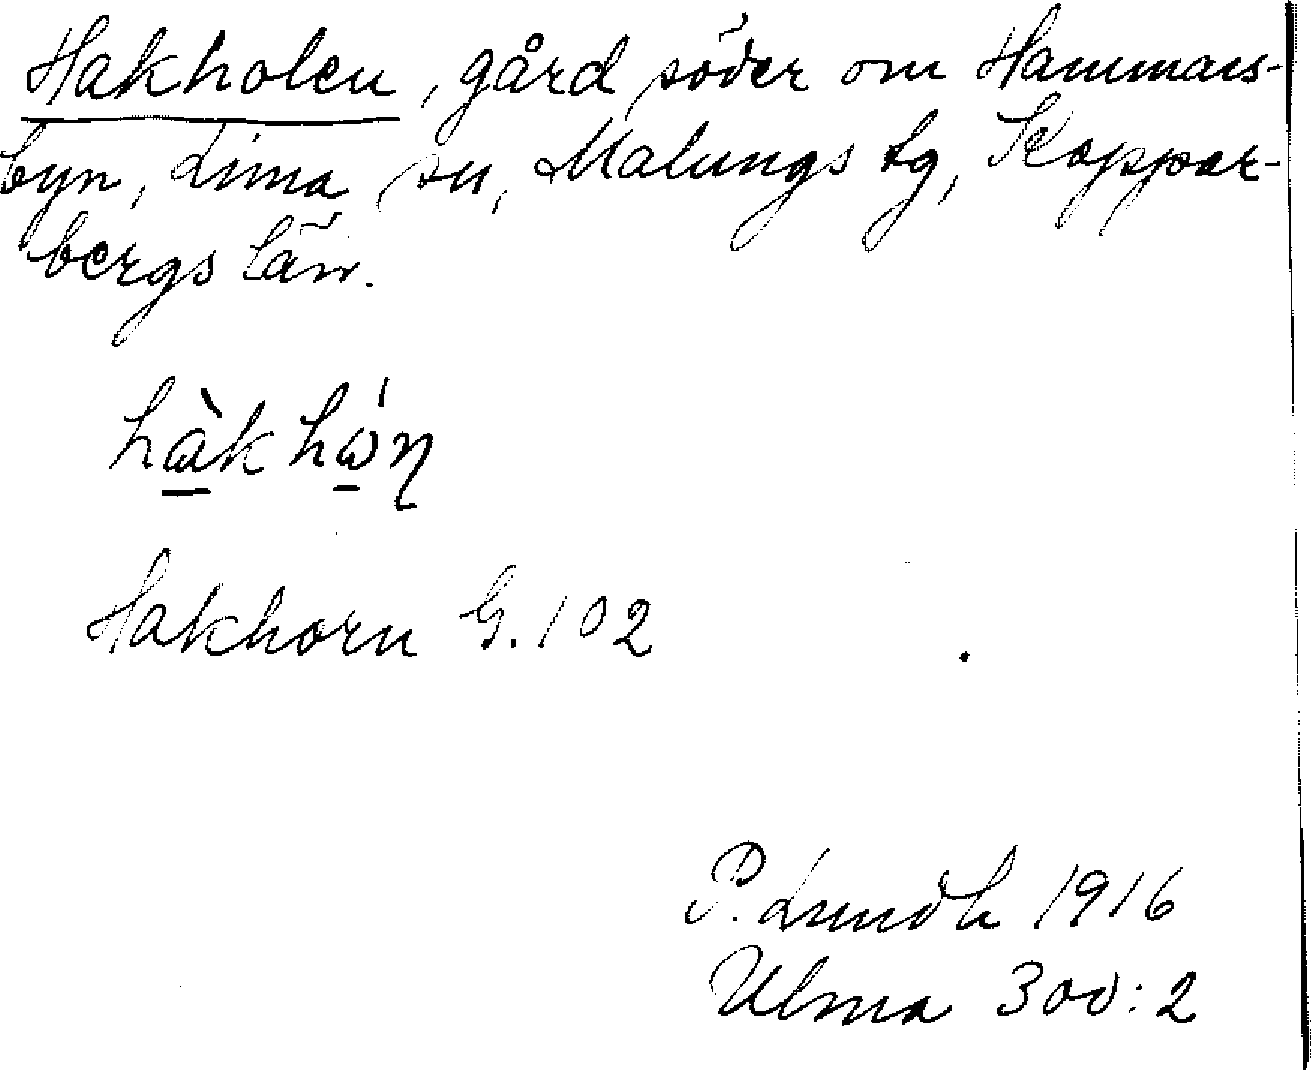 Hakholen, gård söder om Hammars-
byn, Lima sn, Malungs tg, Koppar-
bergs län.
hàkhώη
Hakhorn G. 102
P. Lundh 1916
Ulma 300:2